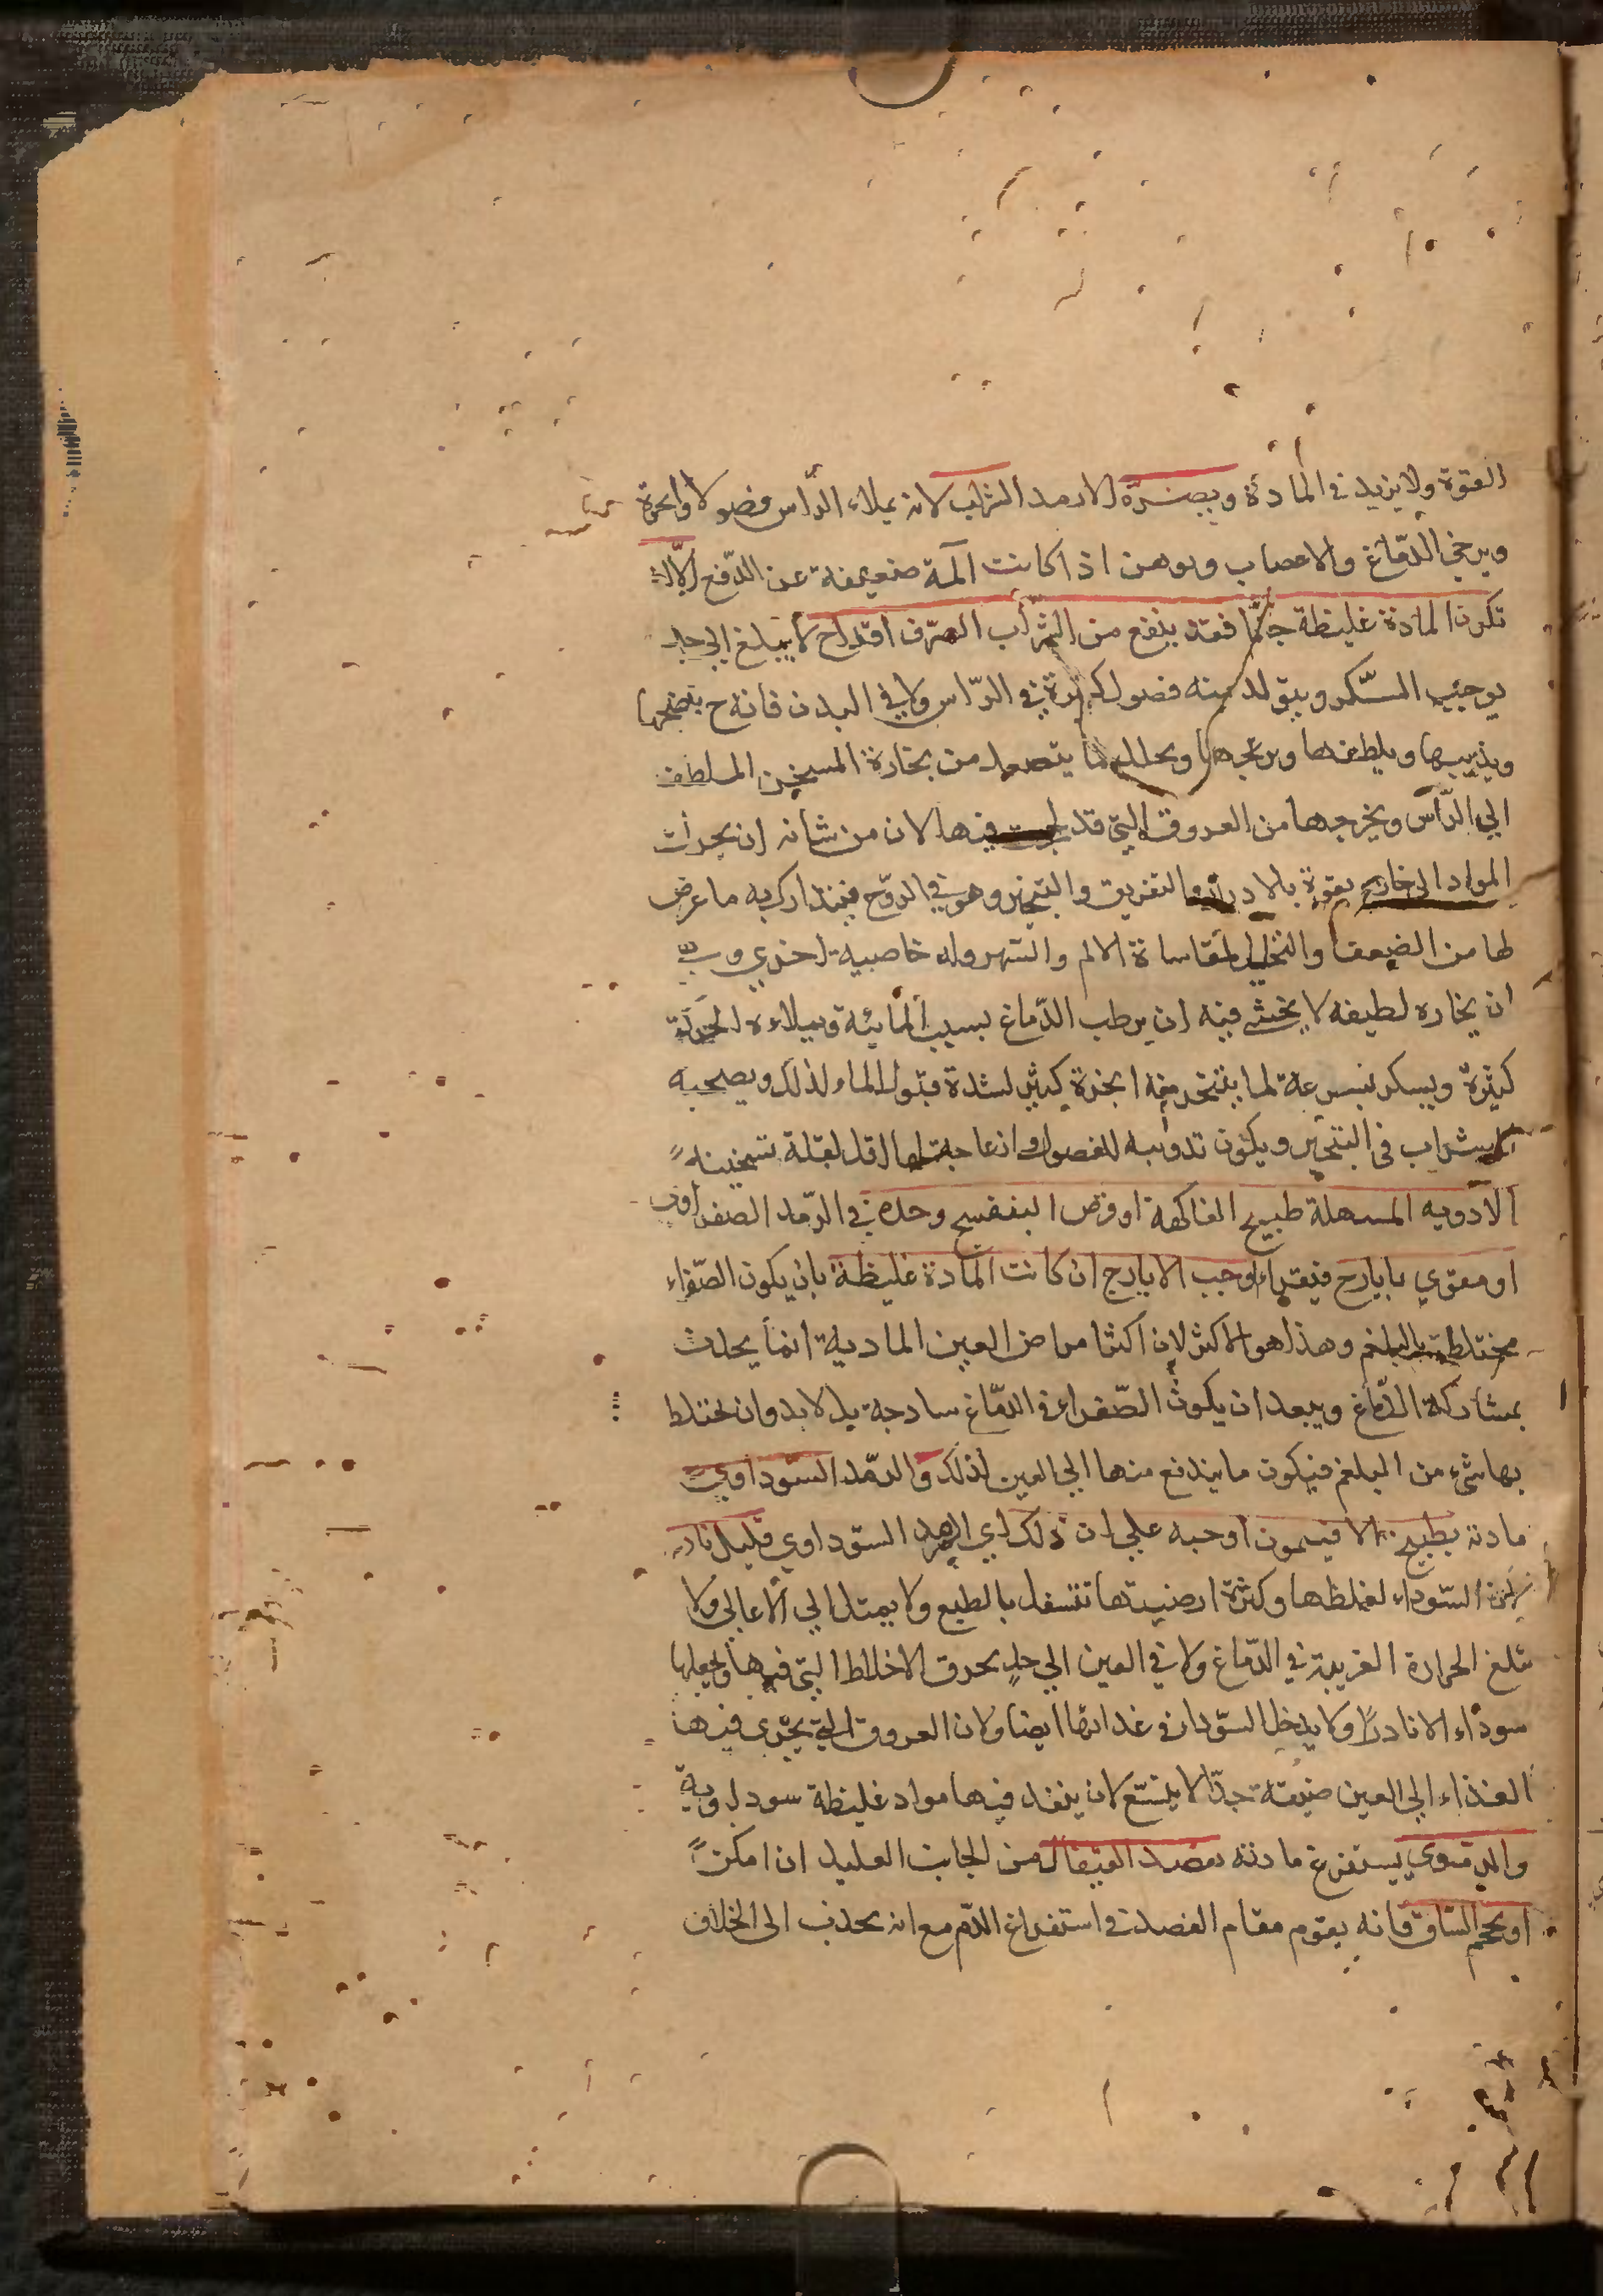 القوة ولا يزيد في المادة ويضره الارمد الشراب لانه يملاء الرأس فضولا وابخرة
ويرخي الدماغ والاعصاب ويوهن اذا كانت آلمة ضعيفة عن الدفع الا ان
تكون المادة غليظة جدا فقد ينفع من الشراب الصرف اقداح لا يبلغ الي حد
يوجب السكر ويتولد منه فضول كثيرة في الرأس ولا في البدن فانه ح ينضجها
ويذيبها ويلطفها ويزعجها ويحلل بما يتصعد من بخاره المسخن الملطف
الي الرأس ويخرجها من العروق التي قد لحجت فيها لان من شانه ان يحرك
المواد الى خارج بقوة بالادرار والتعريق والتبخير وهو يقوي الروح فيتدارك به ما عرض
لها من الضعف والتحلل لمقاساة الالم والسهر وله خاصية اخري وهي
ان بخاره لطيف لا يخشى فيه ان يرطب الدماغ بسبب المائية ويملاءه ابخرة
كثيرة ويسكر بسرعة لما يتبخر منه ابخرة كثير لشدة قبول الماء لذلك ويصحبه
الشراب في التبخير ويكون تذويبه للفضول وازعاجه لها اقل لقلة تسخينه
الادويه المسهلة طبيخ الفاكهة او قرص البنفسج وحده في الرمد الصفراوي
او مقوي بايارج فيقراء او حب الايارج ان كانت المادة غليظة بان يكون الصفراء
مختلطة بالبلغم وهذا هو الاكثر لان اكثر امراض العين المادية انما يحدث
بمشاركة الدماغ ويبعد ان يكون الصفراء في الدماغ ساذجة بل لا بد وان يختلط
بها شيء من البلغم فيكون ما يندفع منها الي العين لذلك والرمد السوداوي
مادته بطبيخ الافتيمون او حبه علي ان ذلك اي الرمد السوداوي قليل نادر
لان السوداء لغلظها وكثرة ارضيتها تتسفل بالطبع ولا يميل الي الاعالي ولا
تبلغ الحرارة الغريبة في الدماغ ولا في العين الي حد يحرق الاخلاط التي فيها ويجعلها
سوداء الا نادرا ولا يدخل السوداء في غذائها ايضا ولان العروق التي يجري فيها
الغذاء الي العين ضيقة جدا لا يتسع لان ينفذ فيها مواد غليظة سوداوية
والدموي يستفرغ مادته بفصد القيفال من الجانب العليل ان امكن
او بحجم الساق فانه يقوم مقام الفصد في استفراغ الدم مع انه يجذب الى الخلاف